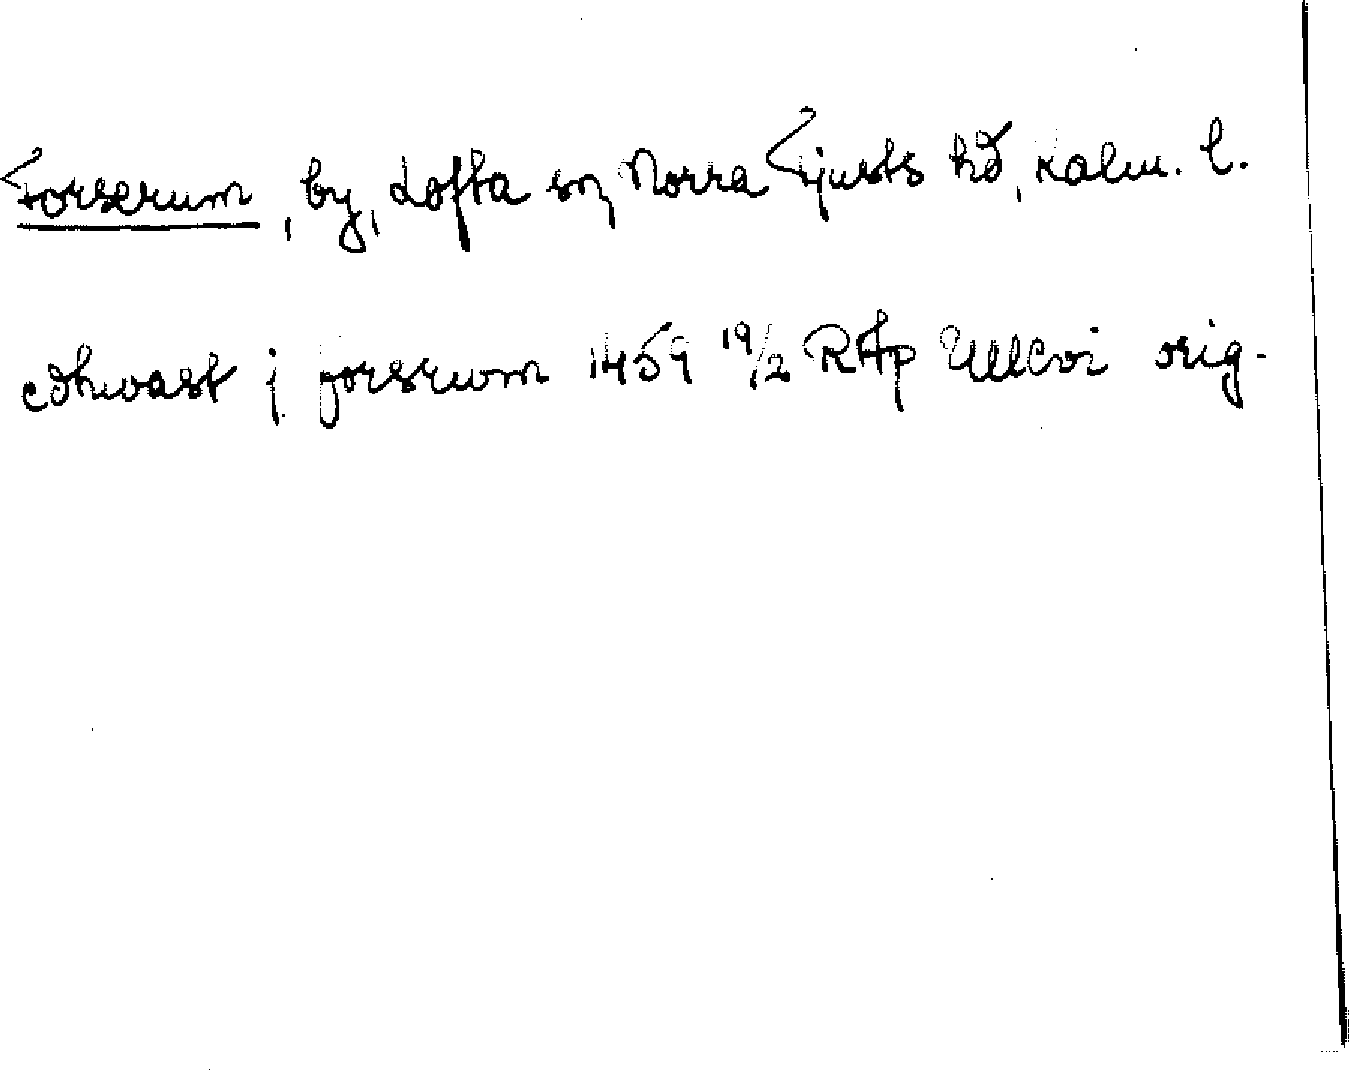 Forserum, by, Lofta sn, Norra Tjusts hd, Kalm. l.
j forsrwm 1459 19/2 RAp orig.